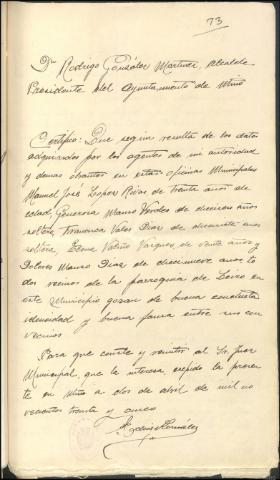 73
Dn Rodrigo González Martinez, Alcalde
Presidente del Ayuntamiento de Miño
Certifico: Que segun resulta de los datos
adquiridos por los agentes de mi autoridad
y demas obrantes en estas oficinas Municipales
Manuel José Lopez Rivas de treinta años de
edad, Generosa Mauro de dieciseis años
soltera Francisca Vales Diaz de diecisiete años
soltera, Elena Vazquez de veinte años y
Dolores Mauro Diaz de diecinueve años to
dos vecinos de la parroquia de en
este Municipio gozan de buena conducta
y buena fama entre sus con
vecinos
Para que conste y remitir al Sr. Juez
Municipal, que la interesa, expido la presen
te en Miño a dos de abril de mil no
vecientos treinta y cinco
González